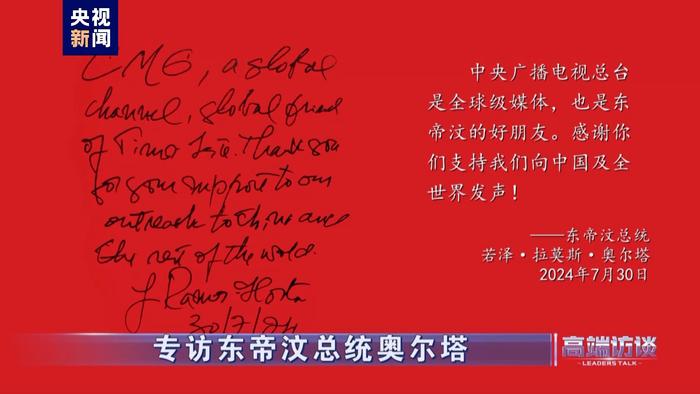 央视
新闻
CMG, a global
channel, global friend
of Timor Leste. Thank you
for your support to our
outreach to China and
the rest of the world.
J Ramos-Horta
30/7/24
中央广播电视总台
是全球级媒体，也是东
帝汶的好朋友。感谢你
们支持我们向中国及全
世界发声！
——东帝汶总统
若泽·拉莫斯·奥尔塔
2024年7月30日
专访东帝汶总统奥尔塔
高端访谈
LEADERS TALK